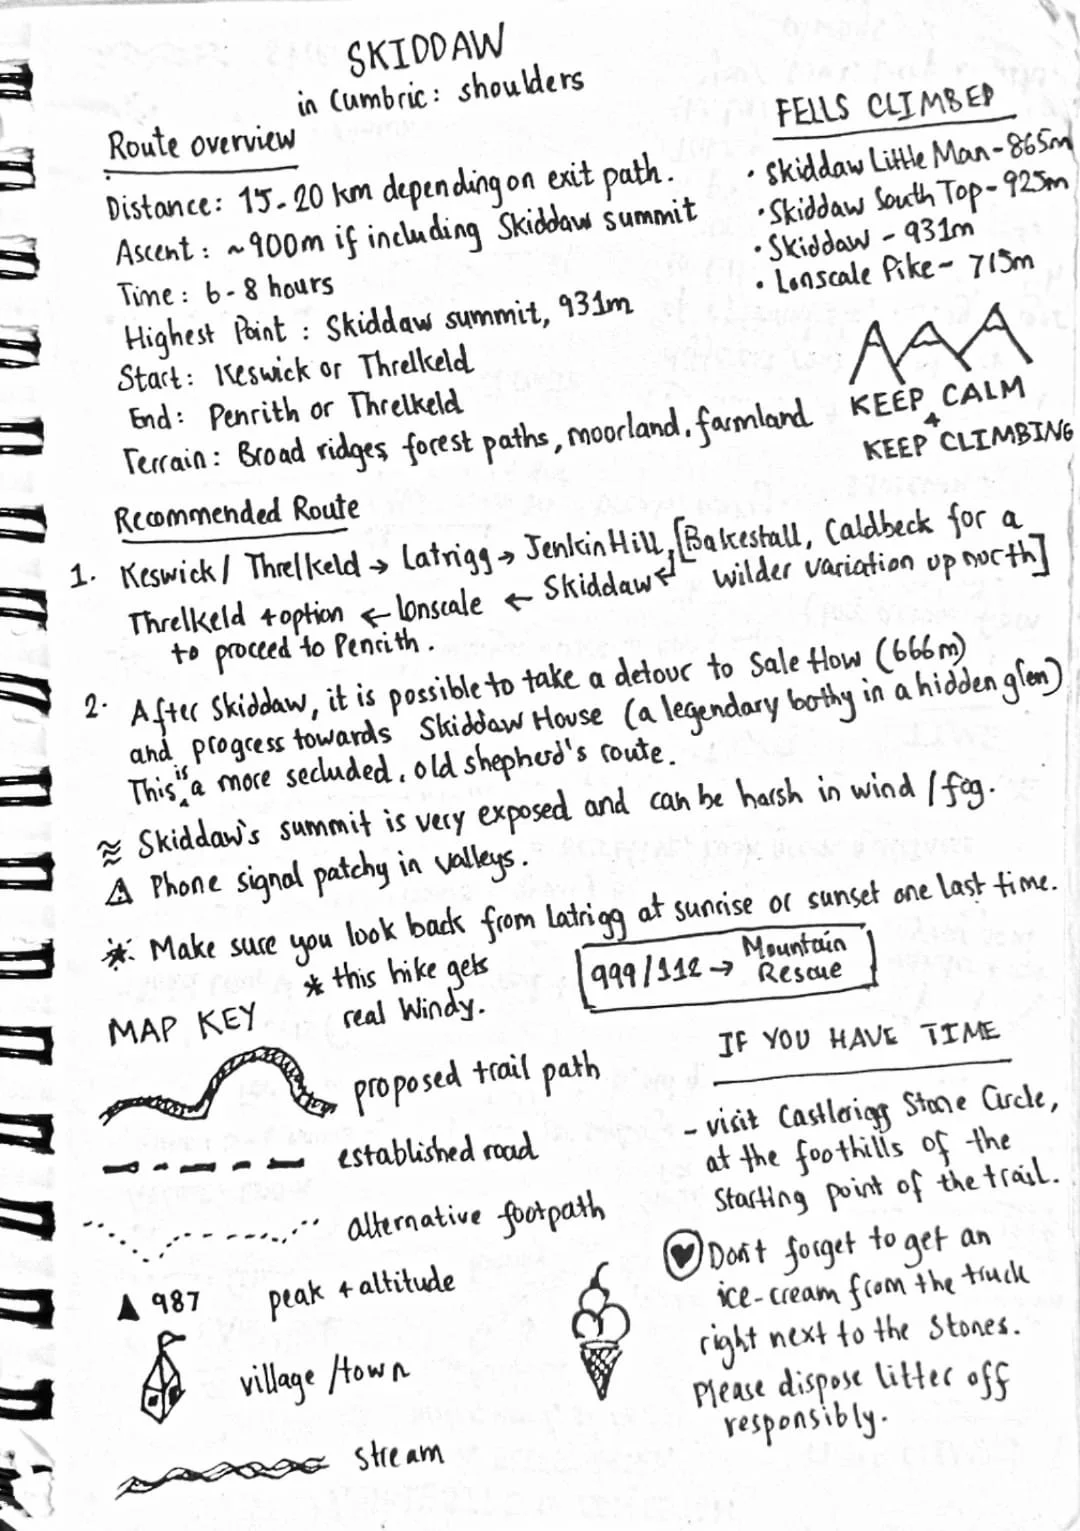 SKIDDAW
in Cumbric: shoulders
Route overview
Distance: 15-20 km depending on exit path.
Ascent: ~900m if including Skiddaw summit
Time: 6-8 hours
Highest Point: Skiddaw summit, 931m
Start: Keswick or Threlkeld
End: Penrith or Threlkeld
Terrain: Broad ridges, forest paths, moorland, farmland
FELLS CLIMBED
• Skiddaw Little Man - 865m
• Skiddaw South Top - 925m
• Skiddaw - 931m
• Lonscale Pike - 715m
KEEP CALM
+
KEEP CLIMBING
Recommended Route
1. Keswick / Threlkeld → Latrigg → Jenkin Hill, [Bakestall, Caldbeck for a
wilder variation up north]
Threlkeld + option ← Lonscale ← Skiddaw ↵
to proceed to Penrith.
2. After Skiddaw, it is possible to take a detour to Sale How (666m)
and progress towards Skiddaw House (a legendary bothy in a hidden glen)
This is a more secluded, old shepherd's route.
Skiddaw's summit is very exposed and can be harsh in wind / fog.
Phone signal patchy in valleys.
Make sure you look back from Latrigg at sunrise or sunset one last time.
* this hike gets
real Windy.
999/112 → Mountain
Rescue
MAP KEY
proposed trail path
established road
alternative footpath
▲ 987 peak + altitude
village /town
stream
IF YOU HAVE TIME
- visit Castlerigg Stone Circle,
at the foothills of the
Starting point of the trail.
Don't forget to get an
ice-cream from the truck
right next to the Stones.
Please dispose litter off
responsibly.